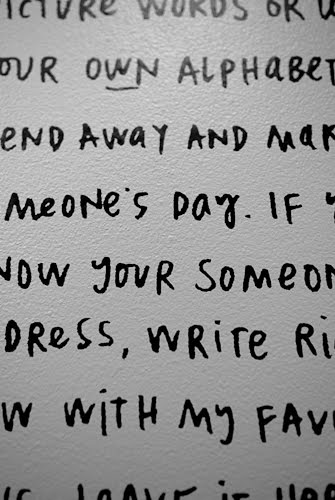 PICTURE WORDS OR
OUR OWN ALPHABET
END AWAY AND MAK
MEONE'S DAY. IF
NOW YOUR SOMEON
DRESS, WRITE RI
W WITH MY FAV
LEAVE IT